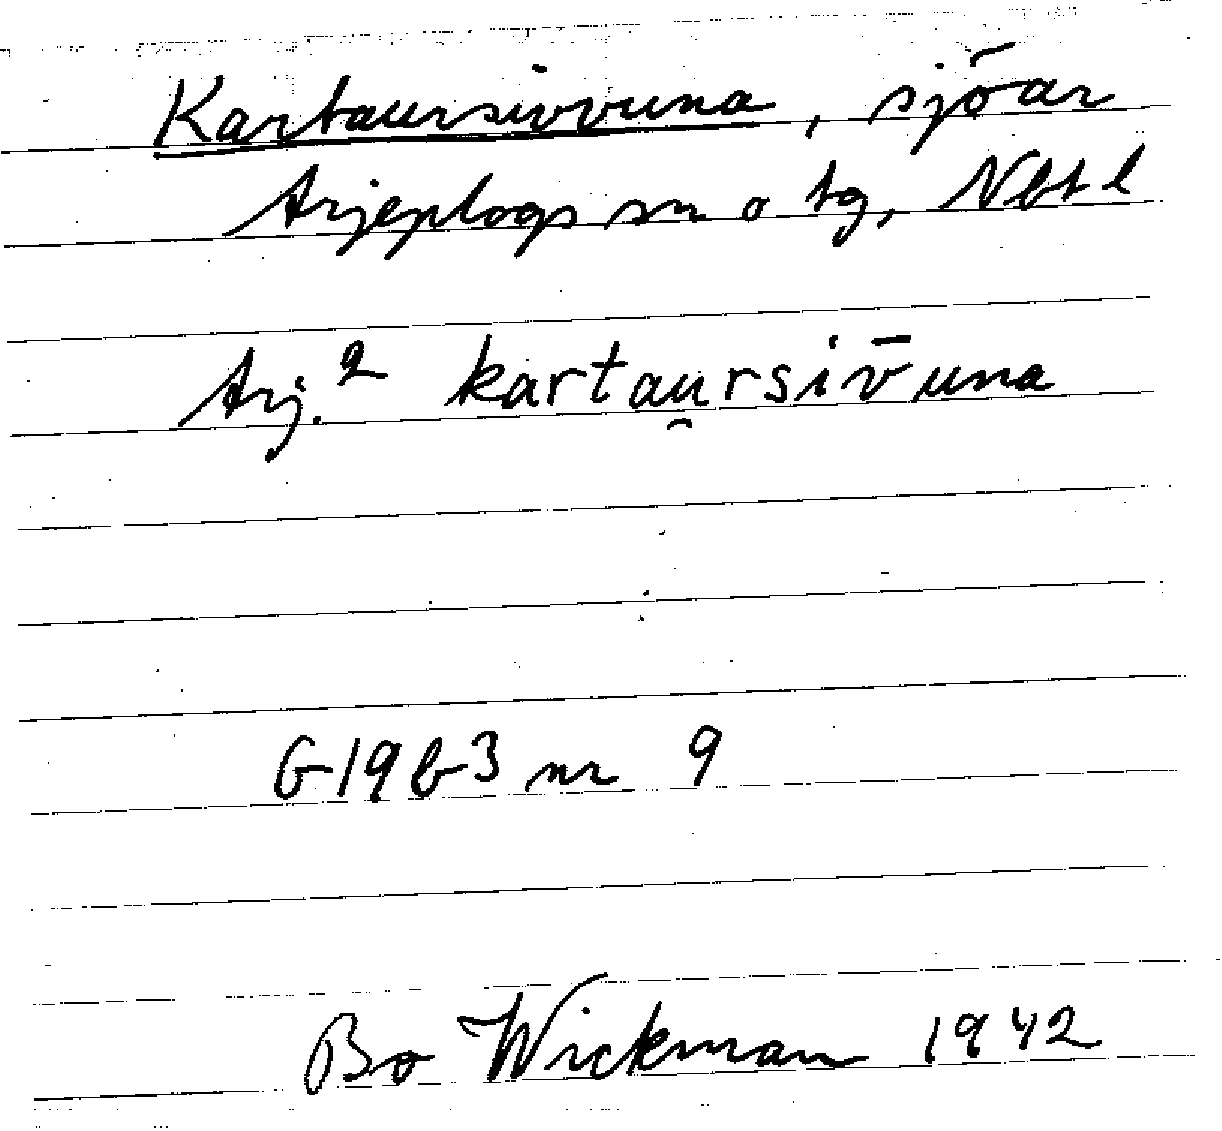 Kartaursivvuna, sjöar
Arjeplogs sn o tg, Nbt l
Arj.² kartau̯rsiv̄una
G19b3 nr 9
Bo Wickman 1942